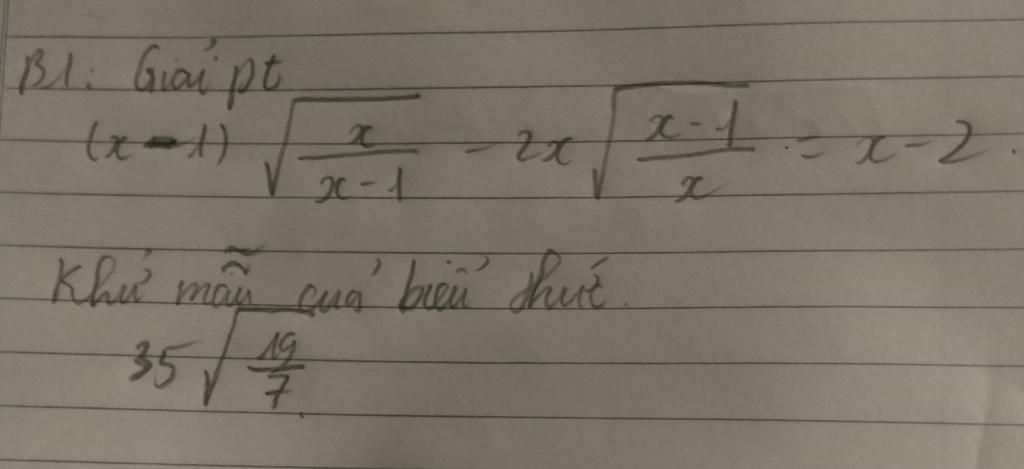 B1: Giải pt
(x-1) √(x/(x-1)) - 2x √((x-1)/x) = x-2.
Khử mẫu của biểu thức.
35 √(19/7)